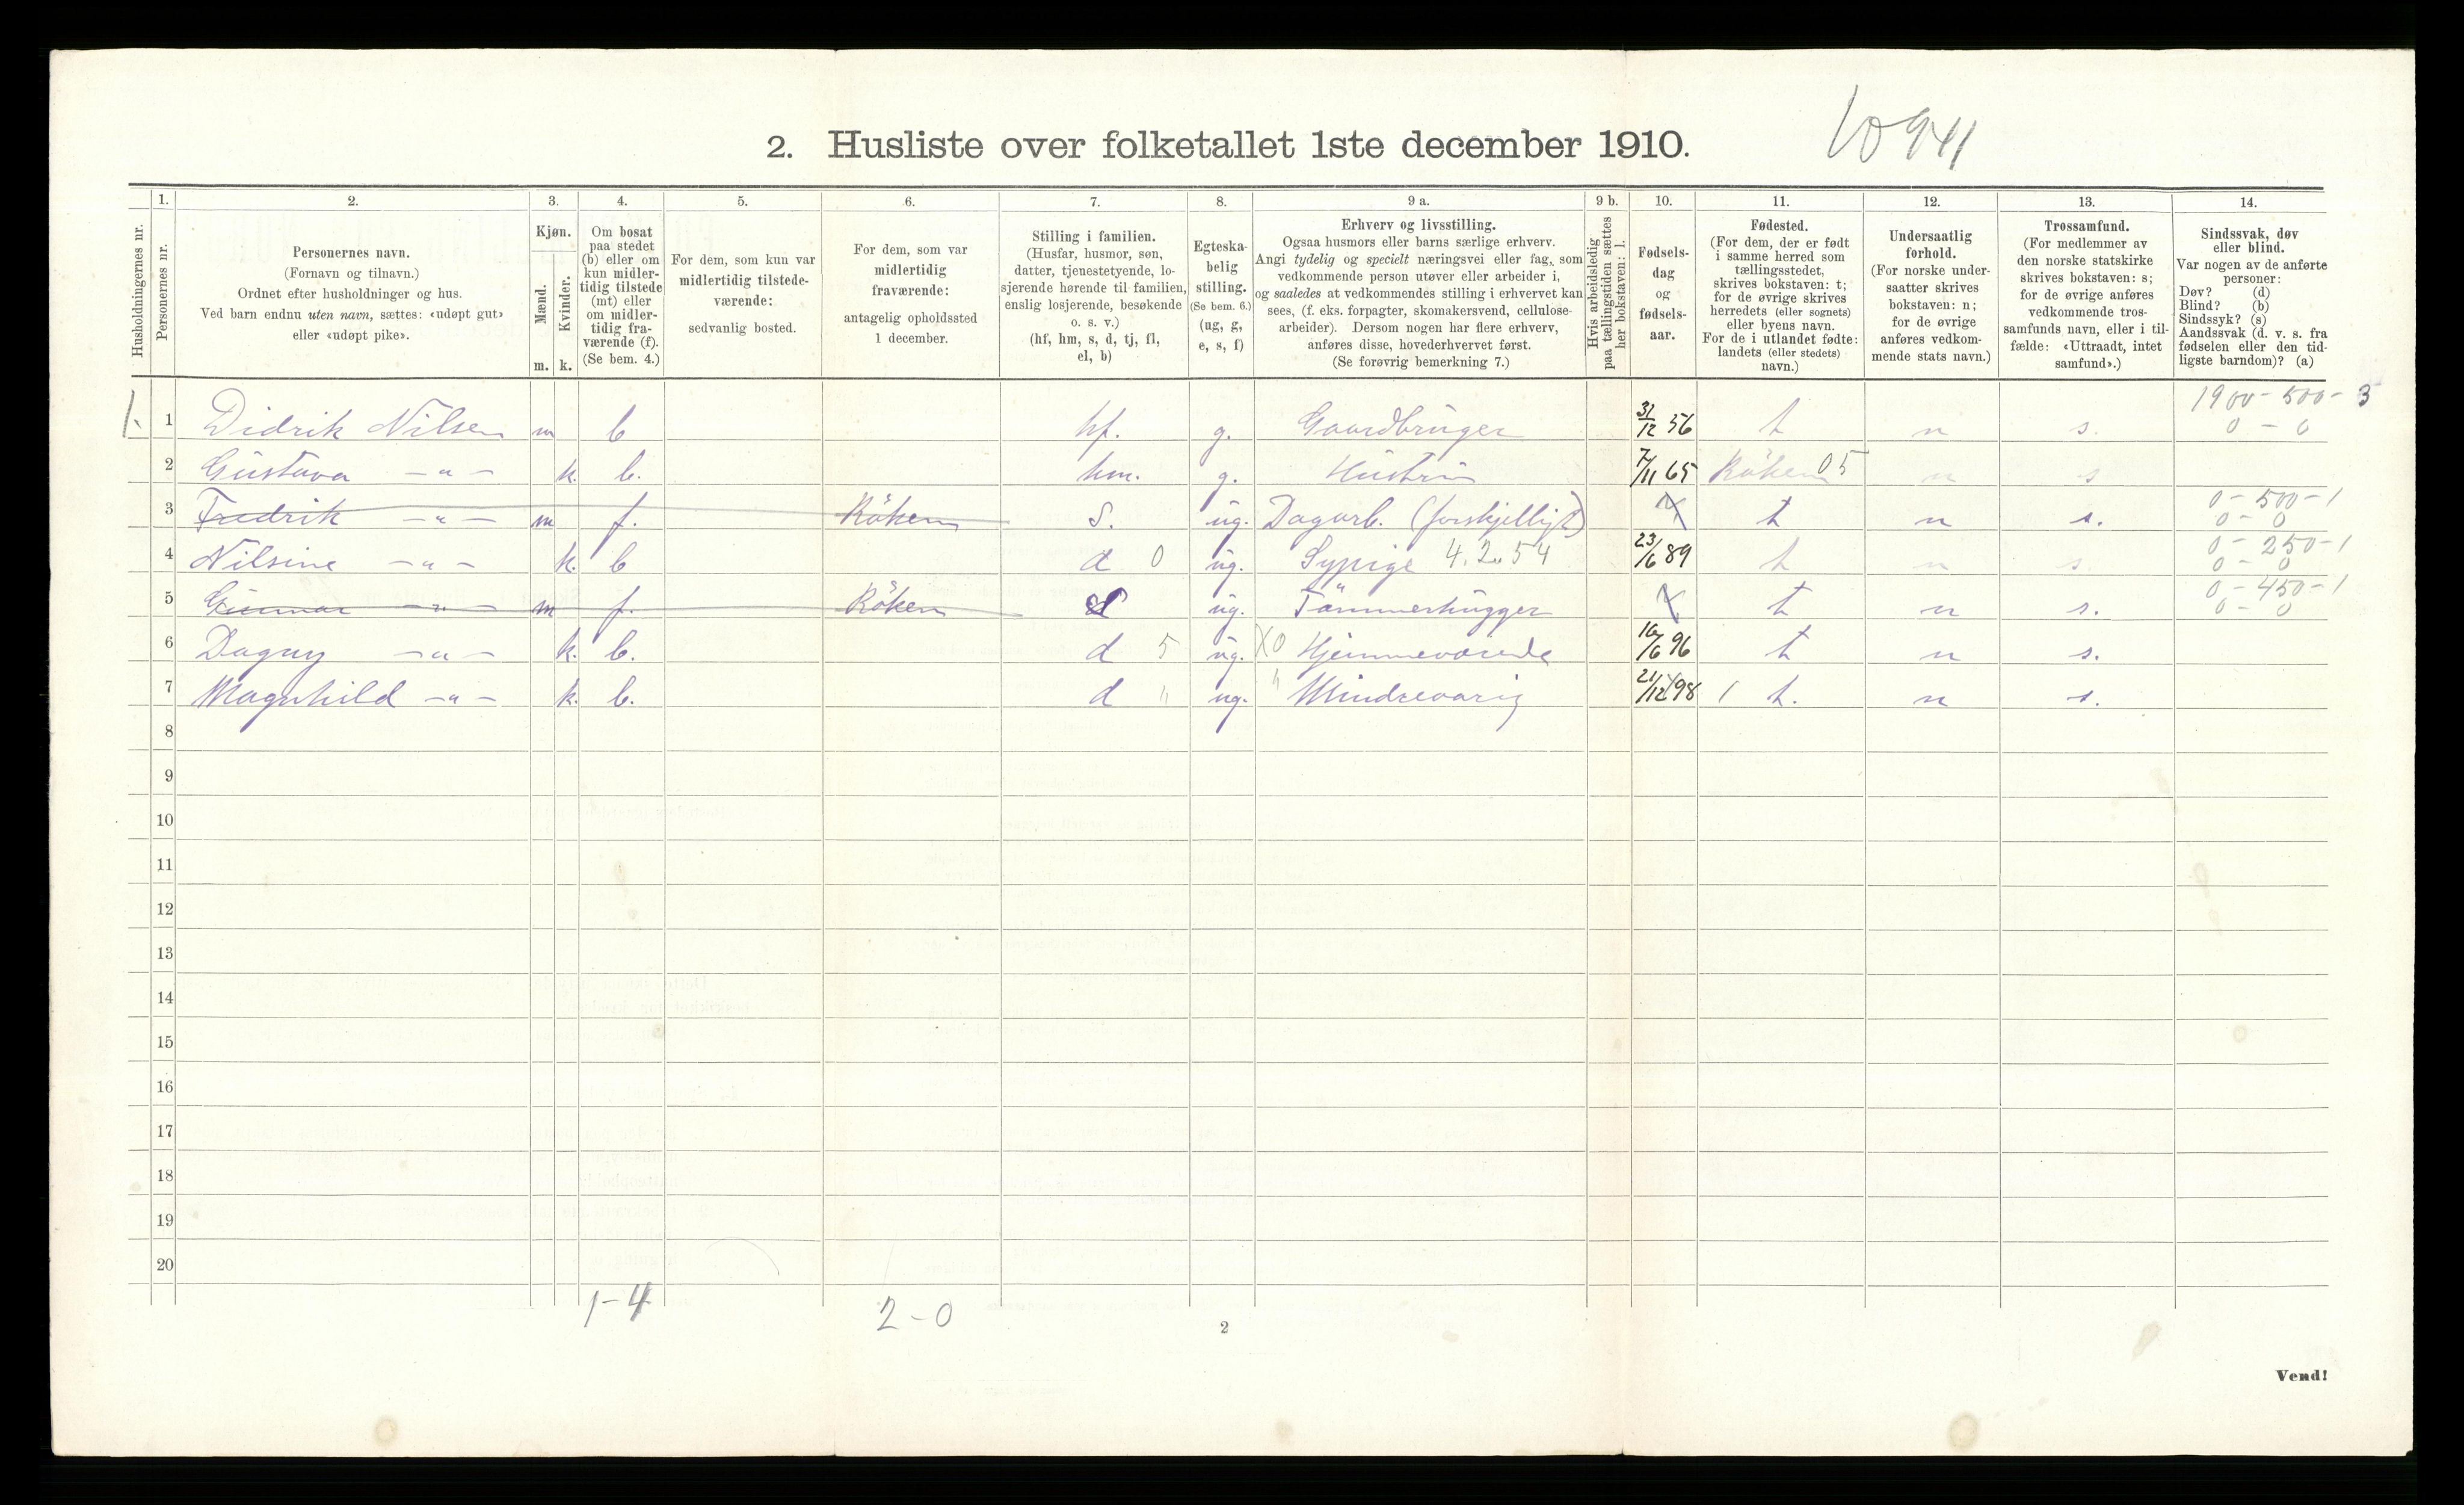 2. Husliste over folketallet 1ste december 1910.
1. 2. 3. 4. 5. 6. 7. 8. 9 a. 9 b. 10. 11. 12. 13. 14.
Husholdningernes nr.
Personernes nr.
Personernes navn.
(Fornavn og tilnavn.)
Ordnet efter husholdninger og hus.
Ved barn endnu uten navn, sættes: «udøpt gut»
eller «udøpt pike».
Kjøn.
Mænd.
Kvinder.
m. k.
Om bosat
paa stedet
(b) eller om
kun midler-
tidig tilstede
(mt) eller
om midler-
tidig fra-
værende (f).
(Se bem. 4.)
For dem, som kun var
midlertidig tilstede-
værende:
sedvanlig bosted.
For dem, som var
midlertidig
fraværende:
antagelig opholdssted
1 december.
Stilling i familien.
(Husfar, husmor, søn,
datter, tjenestetyende, lo-
sjerende hørende til familien,
enslig losjerende, besøkende
o. s. v.)
(hf, hm, s, d, tj, fl,
el, b)
Egteska-
belig
stilling.
(Se bem. 6.)
(ug, g,
e, s, f)
Erhverv og livsstilling.
Ogsaa husmors eller barns særlige erhverv.
Angi tydelig og specielt næringsvei eller fag, som
vedkommende person utøver eller arbeider i,
og saaledes at vedkommendes stilling i erhvervet kan
sees, (f. eks. forpagter, skomakersvend, cellulose-
arbeider). Dersom nogen har flere erhverv,
anføres disse, hovederhvervet først.
(Se forøvrig bemerkning 7.)
Hvis arbeidsledig
paa tællingstiden sættes
her bokstaven: l.
Fødsels-
dag
og
fødsels-
aar.
Fødested.
(For dem, der er født
i samme herred som
tællingsstedet,
skrives bokstaven: t;
for de øvrige skrives
herredets (eller sognets)
eller byens navn.
For de i utlandet fødte:
landets (eller stedets)
navn.)
Undersaatlig
forhold.
(For norske under-
saatter skrives
bokstaven: n;
for de øvrige
anføres vedkom-
mende stats navn.)
Trossamfund.
(For medlemmer av
den norske statskirke
skrives bokstaven: s;
for de øvrige anføres
vedkommende tros-
samfunds navn, eller i til-
fælde: «Uttraadt, intet
samfund».)
Sindssvak, døv
eller blind.
Var nogen av de anførte
personer:
Døv? (d)
Blind? (b)
Sindssyk? (s)
Aandssvak (d. v. s. fra
fødselen eller den tid-
ligste barndom)? (a)
1900-500-3
1. 1 Didrik Nilsen m b hf. g. Gaardbruger 31/12 56 t n s. 0-0
2 Gustava -"- k. b. hm. g. Hustru 7/11 65 Röken 05 n s
0-500-1
3 Fredrik -"- m f. Röken s. ug. Dagarb. (forskjelligt) t n s. 0-0
0-250-1
4 Nilsine -"- k. b d 0 ug. Sypige 4.2.54 23/6 89 t n s 0-0
0-450-1
5 Gunnar -"- m f. Röken ug. Tömmerhugger t n s. 0-0
6 Dagny -"- k. b. d 5 ug. X0 Hjemmeværende 16/6 96 t n s.
7 Magnhild -"- k. b. d " ug. " Mindreaarig 21/12 98 1 t. n s.
8
9
10
11
12
13
14
15
16
17
18
19
20
1-4 2-0
2
Vend!